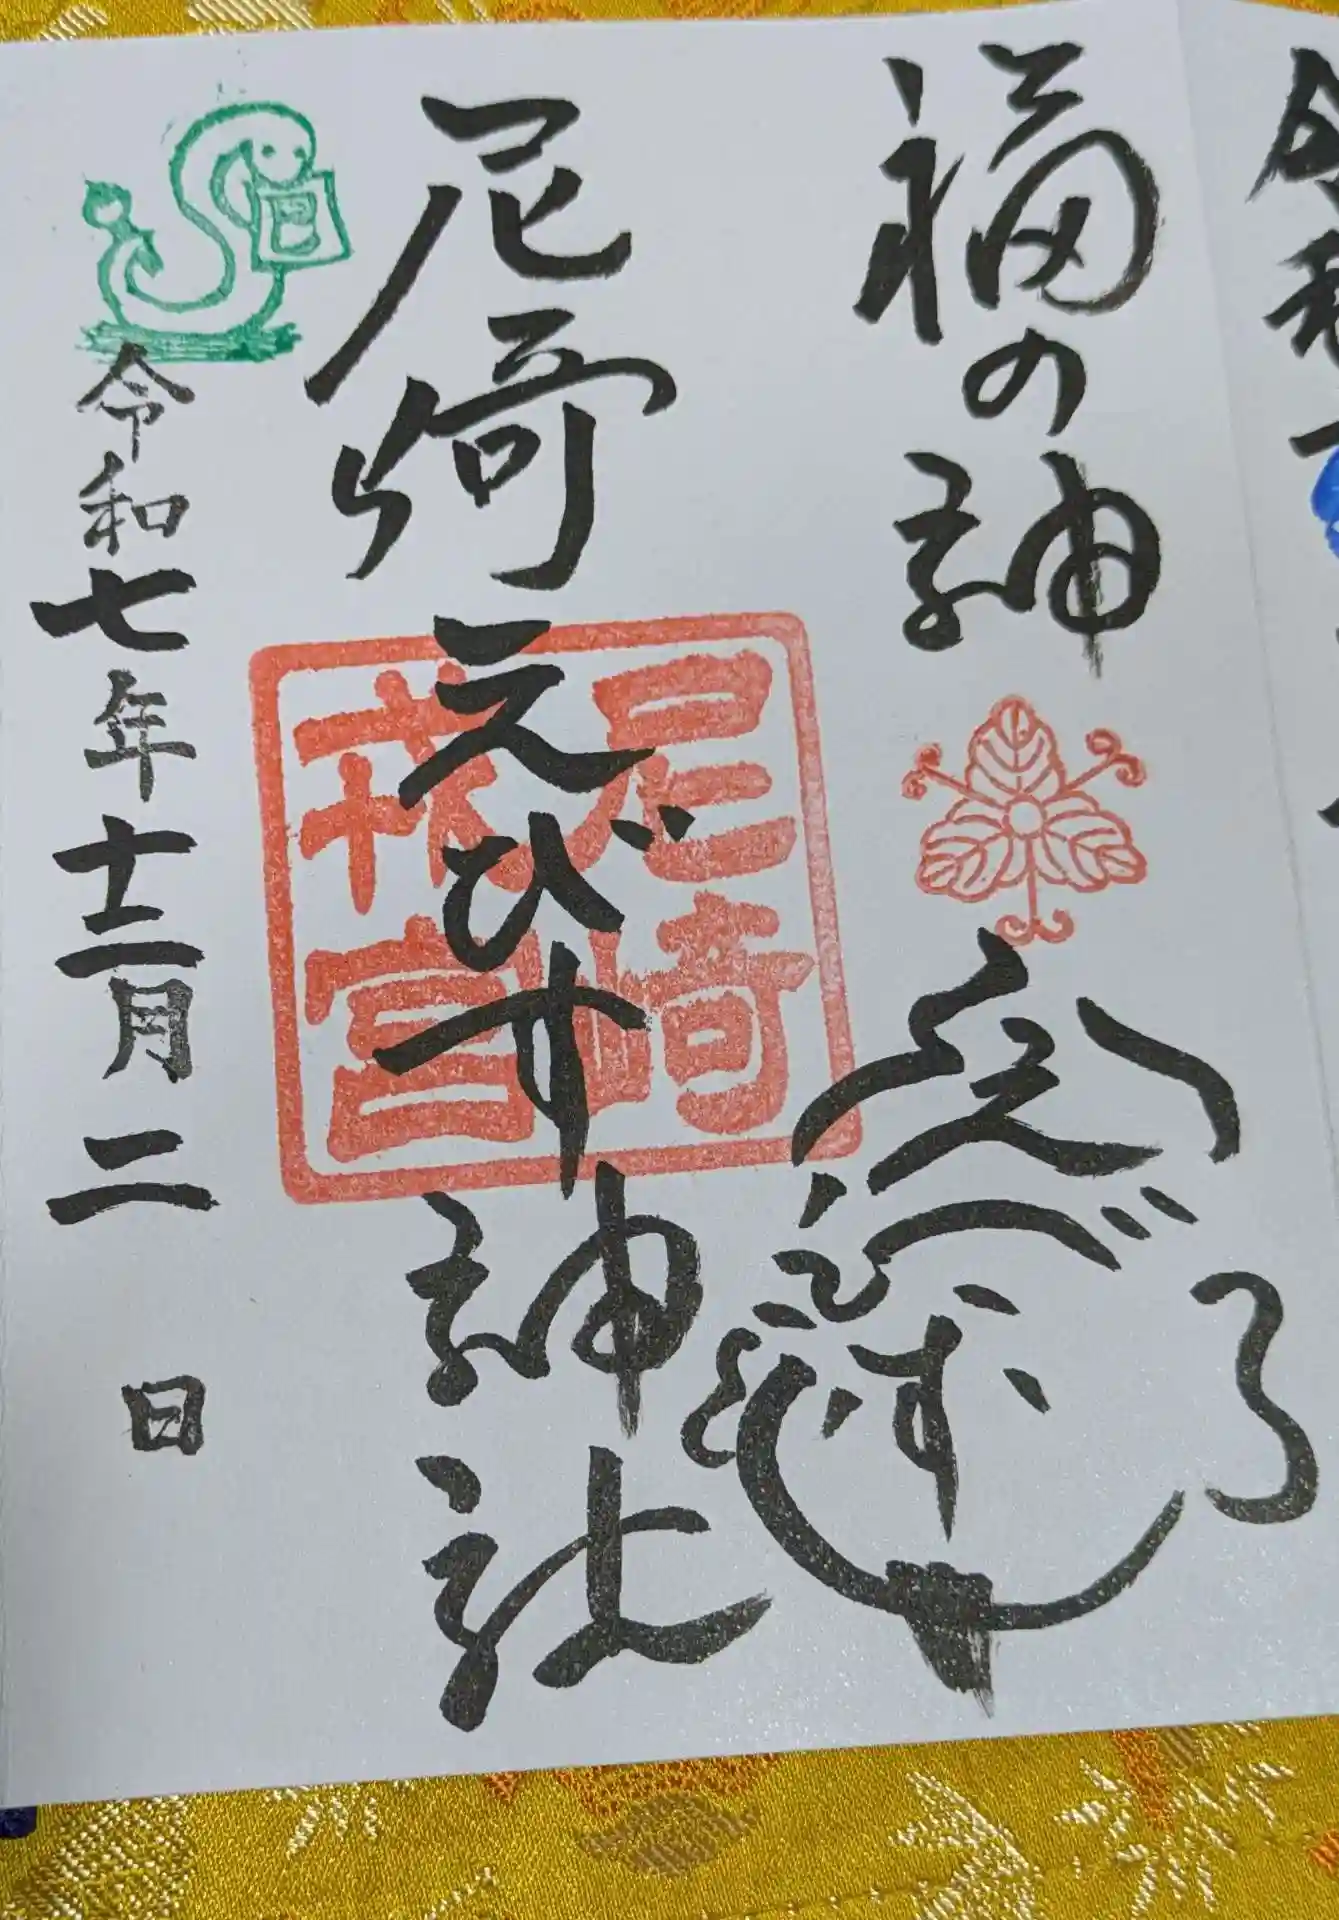 福の神
えびす
尼崎えびす神社
尼崎
戎宮
巳
令和七年十二月二日
令和